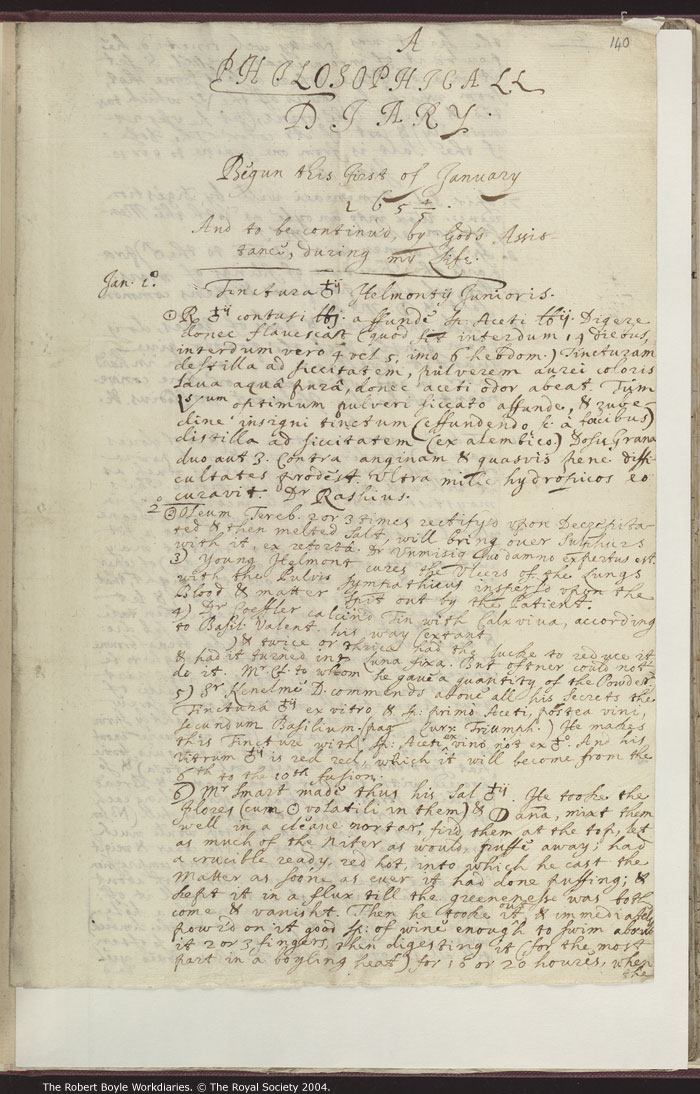 140
A
PHILOSOPHICALL
DIARY.
Begun this first of January
165 4/5.
And to be continu'd, by Gods Assis-
tance, during my Life.
Jan. 1o
Tinctura ♁ij Helmontij Junioris.
① ℞ ♁ij contusi lbj. affunde sp. Aceti lbij. Digere
donec flavescat (quod fit interdum 14 diebus,
interdum vero 4 vel 5, imo 6 hebdom.) Tincturam
destilla ad siccitatem, pulverem aurei coloris
lava aquâ purâ, donec aceti odor abeat. Tum
optimum pulveri siccato affunde, &
insigni tinctum (effundendo à fæcibus)
distilla ad siccitatem (ex alembico.) Dosis Grana
duo aut 3. Contra anginam & quasvis pene diffi-
cultates prodest. Ultra mille hydropicos eo
curavit. Dr Rashius.
2o ② Oleum Tereb. 2 or 3 times rectify'd upon Decrepita-
ted & then melted Salt, will bring over Sulphurs
with it, ex retortâ. Suo damno Expertus est.
3) Young Helmont cures the Ulcers of the Lungs
with the Pulvis Sympatheticus insperso upon the
Blood & matter spit out by the Patient.
4) Dr Coeffler calcin'd Tin with Calx viva, according
to Basil: Valent. his way (extant
) & twice or thrice had the lucke to reduce it
& had it turned into Luna fixa. But oftner could not
do it. Mr Cl. to whom he gave a quantity of the Powder.
5) Sr Kenelme D. commends above all his Secrets the
Tinctura ♁ij ex vitro & sp: primo Aceti, postea vini,
secundum Basilium. (pag Curr: Triumph.) He makes
this Tincture with sp: Aceti ex vino not ex And his
Vitrum ♁ij is red red, which it will become from the
6th to the 10th fusion.
6) Mr Smart made thus his Sal ♁ij. He tooke the
flores (cum volatili in them) & ana, mixt them
well in a cleane mortar, fir'd them at the top, let
as much of the Niter as would, puffe away; had
a crucible ready, red hot, into which he cast the
Matter as soone as ever it had done puffing; &
kept it in a flux till the greenenesse was both
come & vanisht. Then he tooke it out & immediately
powr'd on it good sp: of wine enough to swim above
it 2 or 3 fingers, then digesting it (for the most
part in a boyling heat) for 16 or 20 houres, when
the
The Robert Boyle Workdiaries. © The Royal Society 2004.